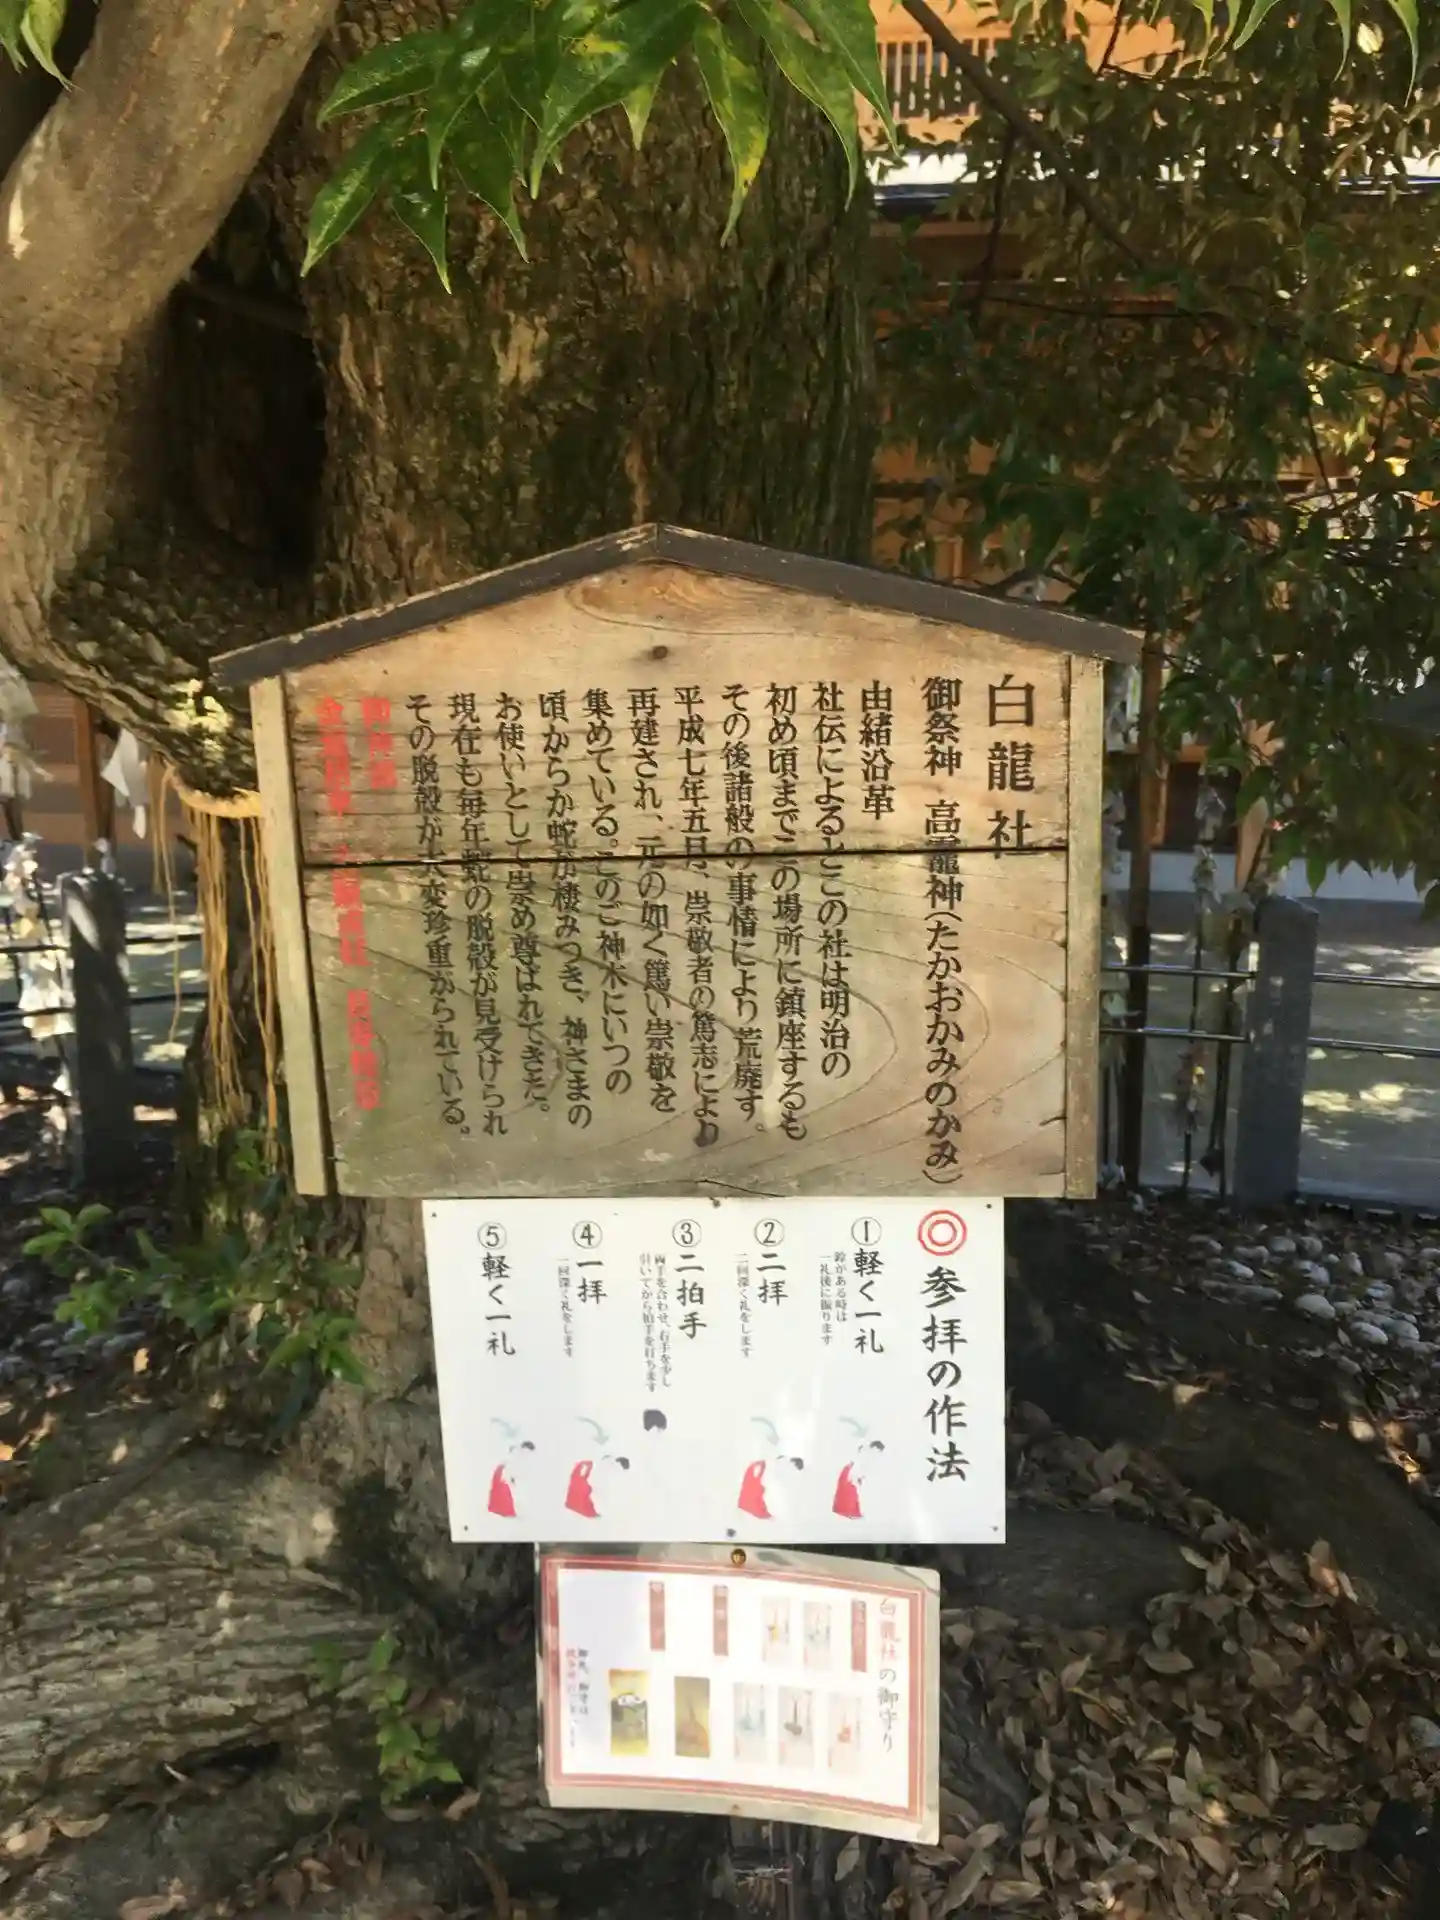 白龍社
御祭神 高龗神(たかおかみのかみ)
由緒沿革
社伝によるとこの社は明治の
初め頃までこの場所に鎮座するも
その後諸般の事情により荒廃す。
平成七年五月、崇敬者の篤志により
再建され、元の如く篤い崇敬を
集めている。このご神木にいつの
頃からか蛇が棲みつき、神さまの
お使いとして崇め尊ばれてきた。
現在も毎年蛇の脱殻が見受けられ
その脱殻が大変珍重がられている。
◎参拝の作法
①軽く一礼
鈴がある時は
一礼後に振ります
②二拝
二回深く礼をします
③二拍手
両手を合わせ、右手を少し
引いてから拍手を打ちます
④一拝
一回深く礼をします
⑤軽く一礼
白龍社の御守り